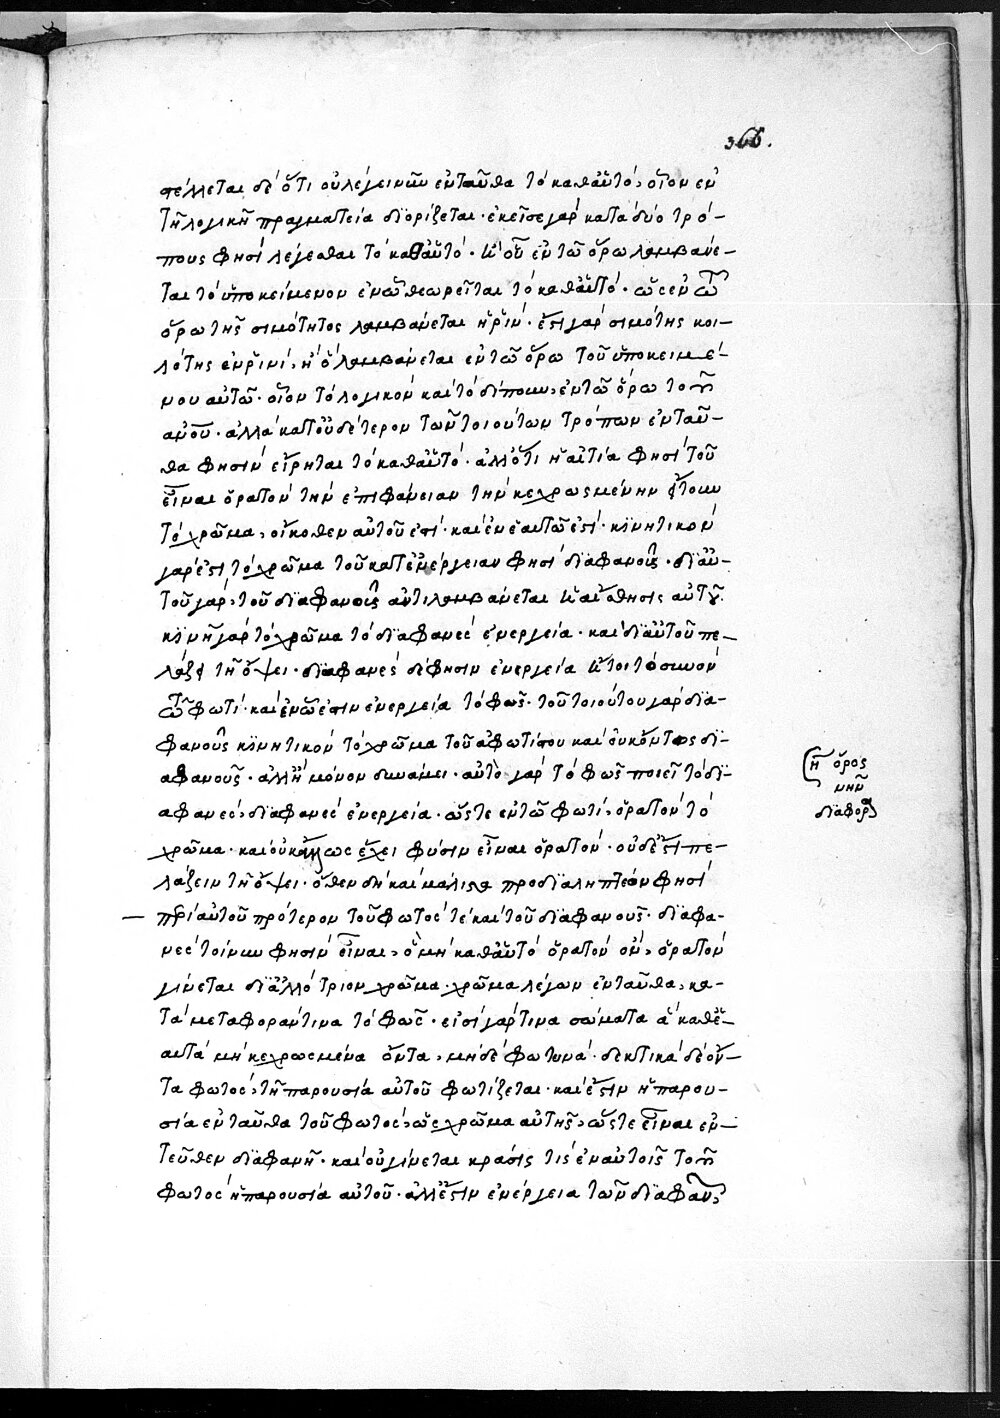 366.
στέλλεται δὲ ὅτι οὐ λέγει νῦν ἐνταῦθα τὸ καθαὑτό, οἷον ἐν
τῆ λογικῆ πραγματεία διορίζεται· ἐκεῖσε γὰρ κατὰ δύο τρό-
πους φησὶ λέγεσθαι τὸ καθαὑτό· ἢ οὗ ἐν τῶ ὅρω λαμβάνε-
ται τὸ ὑποκείμενον ἐν ὧ θεωρεῖται τὸ καθαὑτό· ὡς ἐν τῶ
ὅρω τῆς σιμότητος λαμβάνεται ἡ ῥίν· ἔστι γὰρ σιμότης κοι-
λότης ἐν ῥινί, ἢ ὃ λαμβάνεται ἐν τῶ ὅρω τοῦ ὑποκειμέ-
νου αὐτῶ· οἷον τὸ λογικὸν καὶ τὸ δίπουν, ἐν τῶ ὅρω τοῦ
ἀνου· ἀλλὰ κατ' οὐδέτερον τῶν τοιούτων τρόπων ἐνταῦ-
θα φησὶν εἴρηται τὸ καθαὑτό· ἀλλ' ὅτι ἡ αἰτία φησὶ τοῦ
εἶναι ὁρατὸν τὴν ἐπιφάνειαν τὴν κεχρωσμένην ἤτουν
τὸ χρῶμα, οἴκοθεν αὐτοῦ ἐστί· καὶ ἐν ἑαυτῶ ἐστί· κινητικὸν
γάρ ἐστι τὸ χρῶμα τοῦ κατ' ἐνέργειαν φησὶ διαφανοῦς· δι' αὐ-
τοῦ γάρ, τοῦ διαφανοῦς ἀντιλαμβάνεται ἡ αἴσθησις αὐτοῦ.
κινῆ γὰρ τὸ χρῶμα τὸ διαφανὲς ἐνεργεία· καὶ δι' αὐτοῦ πε-
λάζει τῆ ὄψει· διαφανὲς δέ φησιν ἐνεργεία ἤτοι τὸ συνὸν
τῶ φωτί· καὶ ἐν ὧ ἐστιν ἐνεργεία τὸ φῶς· τοῦ τοιούτου γὰρ δια-
φανοῦς κινητικὸν τὸ χρῶμα τοῦ ἀφωτίστου καὶ οὐκ ὄντος δι-
αφανοῦς· ἀλλ' ἢ μόνον δυνάμει· αὐτὸ γὰρ τὸ φῶς ποιεῖ τὸ δι-
αφανές, διαφανὲς ἐνεργεία· ὥστε ἐν τῶ φωτί, ὁρατὸν τὸ
χρῶμα· καὶ οὐκ ἄλλως ἔχει φύσιν εἶναι ὁρατόν· οὐδ' ἔστι πε-
λάζειν τῆ ὄψει· ὅθεν δὴ καὶ μάλιστα προδιαληπτέον φησὶ
περὶ αὐτοῦ πρότερον τοῦ φωτός τε καὶ τοῦ διαφανοῦς· διαφα-
νὲς τοίνυν φησὶν εἶναι, ὃ μὴ καθαὑτὸ ὁρατὸν ὂν, ὁρατὸν
γίνεται δι' ἀλλότριον χρῶμα· χρῶμα λέγων ἐνταῦθα, κα-
τὰ μεταφοράν τινα τὸ φῶς· εἰσὶ γάρ τινα σώματα ἃ καθ' ἑ-
αυτὰ μὴ κεχρωσμένα ὄντα, μηδὲ φωτινά· δεκτικὰ δὲ ὄν-
τα φωτός, τῆ παρουσία αὐτοῦ φωτίζεται· καὶ ἔστιν ἡ παρου-
σία ἐνταῦθα τοῦ φωτός, ὡς χρῶμα αὐτῆς, ὥστε εἶναι ἐν-
τεῦθεν διαφανῆ· καὶ οὐ γίνεται κράσις τις ἐν αὐτοῖς τοῦ
φωτὸς ἡ παρουσία αὐτοῦ· ἀλλ' ἔστιν ἐνέργεια τῶν διαφανῶν,
ὅρος
διάφορ